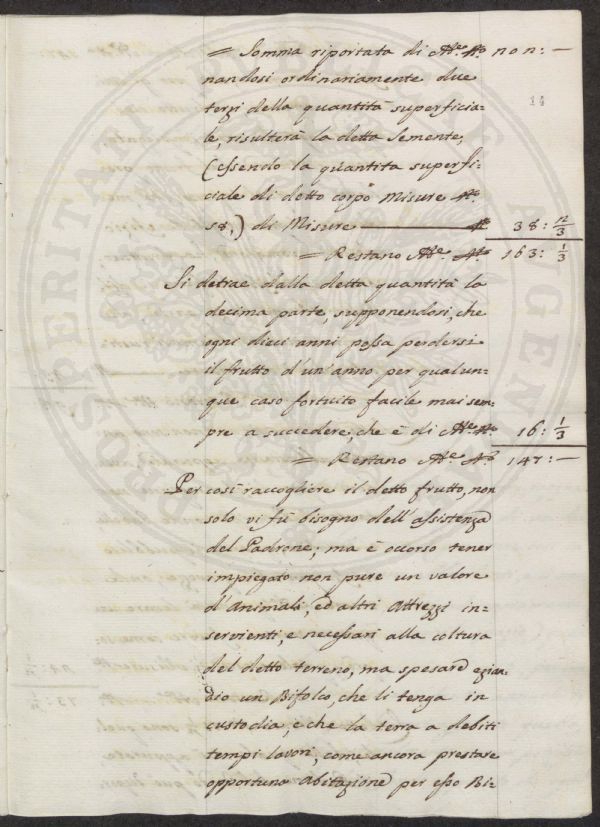 = Somma riportata di N.º non: —
nandosi ordinariamente due
terzi della quantità superficia=
le, risulterà la detta Semente,
(essendo la quantità superfi=
ciale di detto corpo Misure N.º
58,) di Misure — N.º 38: 2/3
= Restano N.º 163: 1/3
Si detrae dalla detta quantità la
decima parte, supponendosi, che
ogni dieci anni possa perdersi
il frutto d'un'anno per qualun=
que caso fortuito facile mai sem=
pre a succedere, che è di N.º 16: 1/3
= Restano N.º 147: —
Per così raccogliere il detto frutto, non
solo vi fù bisogno dell'assistenza
del Padrone; ma è occorso tener
impiegato non pure un valore
d'Animali, ed altri Attrezzi in=
servienti, e necessari alla coltura
del detto terreno, ma spesare ezian=
dio un Bifolco, che li tenga in
custodia, e che la terra a debiti
tempi lavori, come ancora prestare
opportuna Abitazione per esso Bi=
14
PROSPERITATI PUBLICAE AUGENDAE